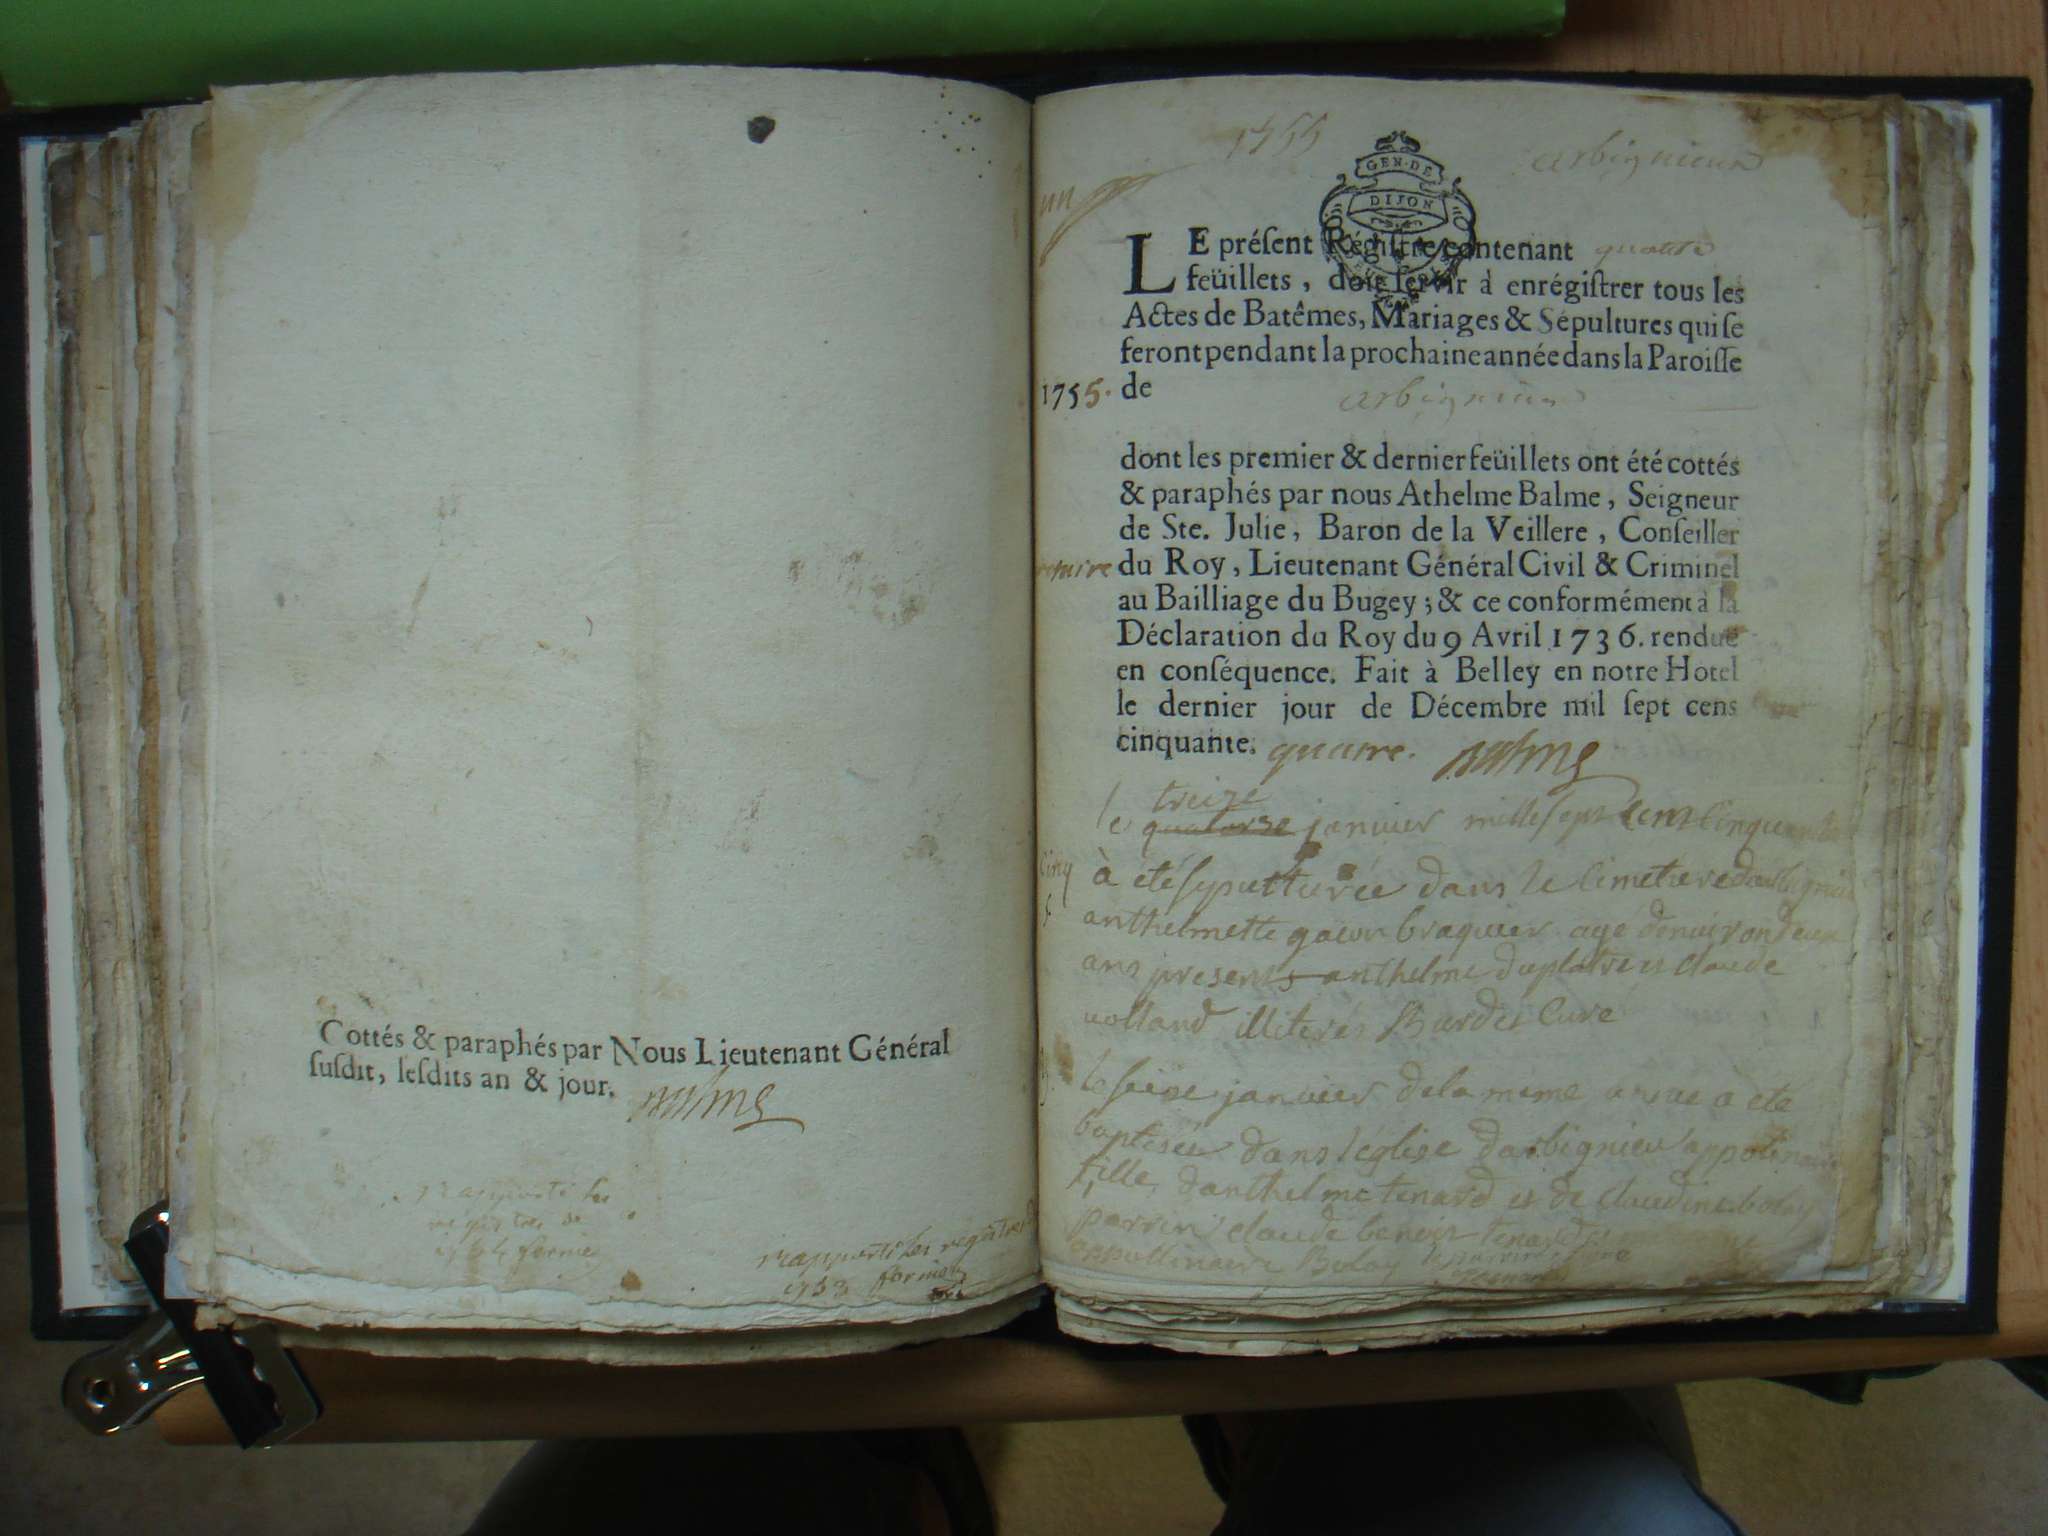 Cottés & paraphés par Nous Lieutenant Général
ſuſdit, leſdits an & jour. Balme
rapporté les
registres de
rapporté les registres
1753
1755
arbignieux
GEN·DE
DIJON
LE préſent Régiſtre contenant quatre
feüillets, doit ſervir à enrégiſtrer tous les
Actes de Batêmes, Mariages & Sépultures qui ſe
feront pendant la prochaine année dans la Paroiſſe
1755. de arbignieux
dont les premier & dernier feüillets ont été cottés
& paraphés par nous Athelme Balme, Seigneur
de Ste. Julie, Baron de la Veillere, Conſeiller
du Roy, Lieutenant Général Civil & Criminel
au Bailliage du Bugey; & ce conformément à la
Déclaration du Roy du 9 Avril 1736. rendue
en conſéquence. Fait à Belley en notre Hotel
le dernier jour de Décembre mil ſept cens
cinquante. quatre. Balme
treize
le quatorze janvier mille sept cent cinquante
cinq à été sepulturée dans le cimetiere darbignieu
anthelmette braquier agé denviron deux
ans presents anthelme duplatre et claude
volland illiterés Burdet Curé
le seize janvier de la meme année a été
baptisée dans léglise darbignieu appolinaire
fille danthelme tenard et de claudine bolon
parrin claude benoit tenard